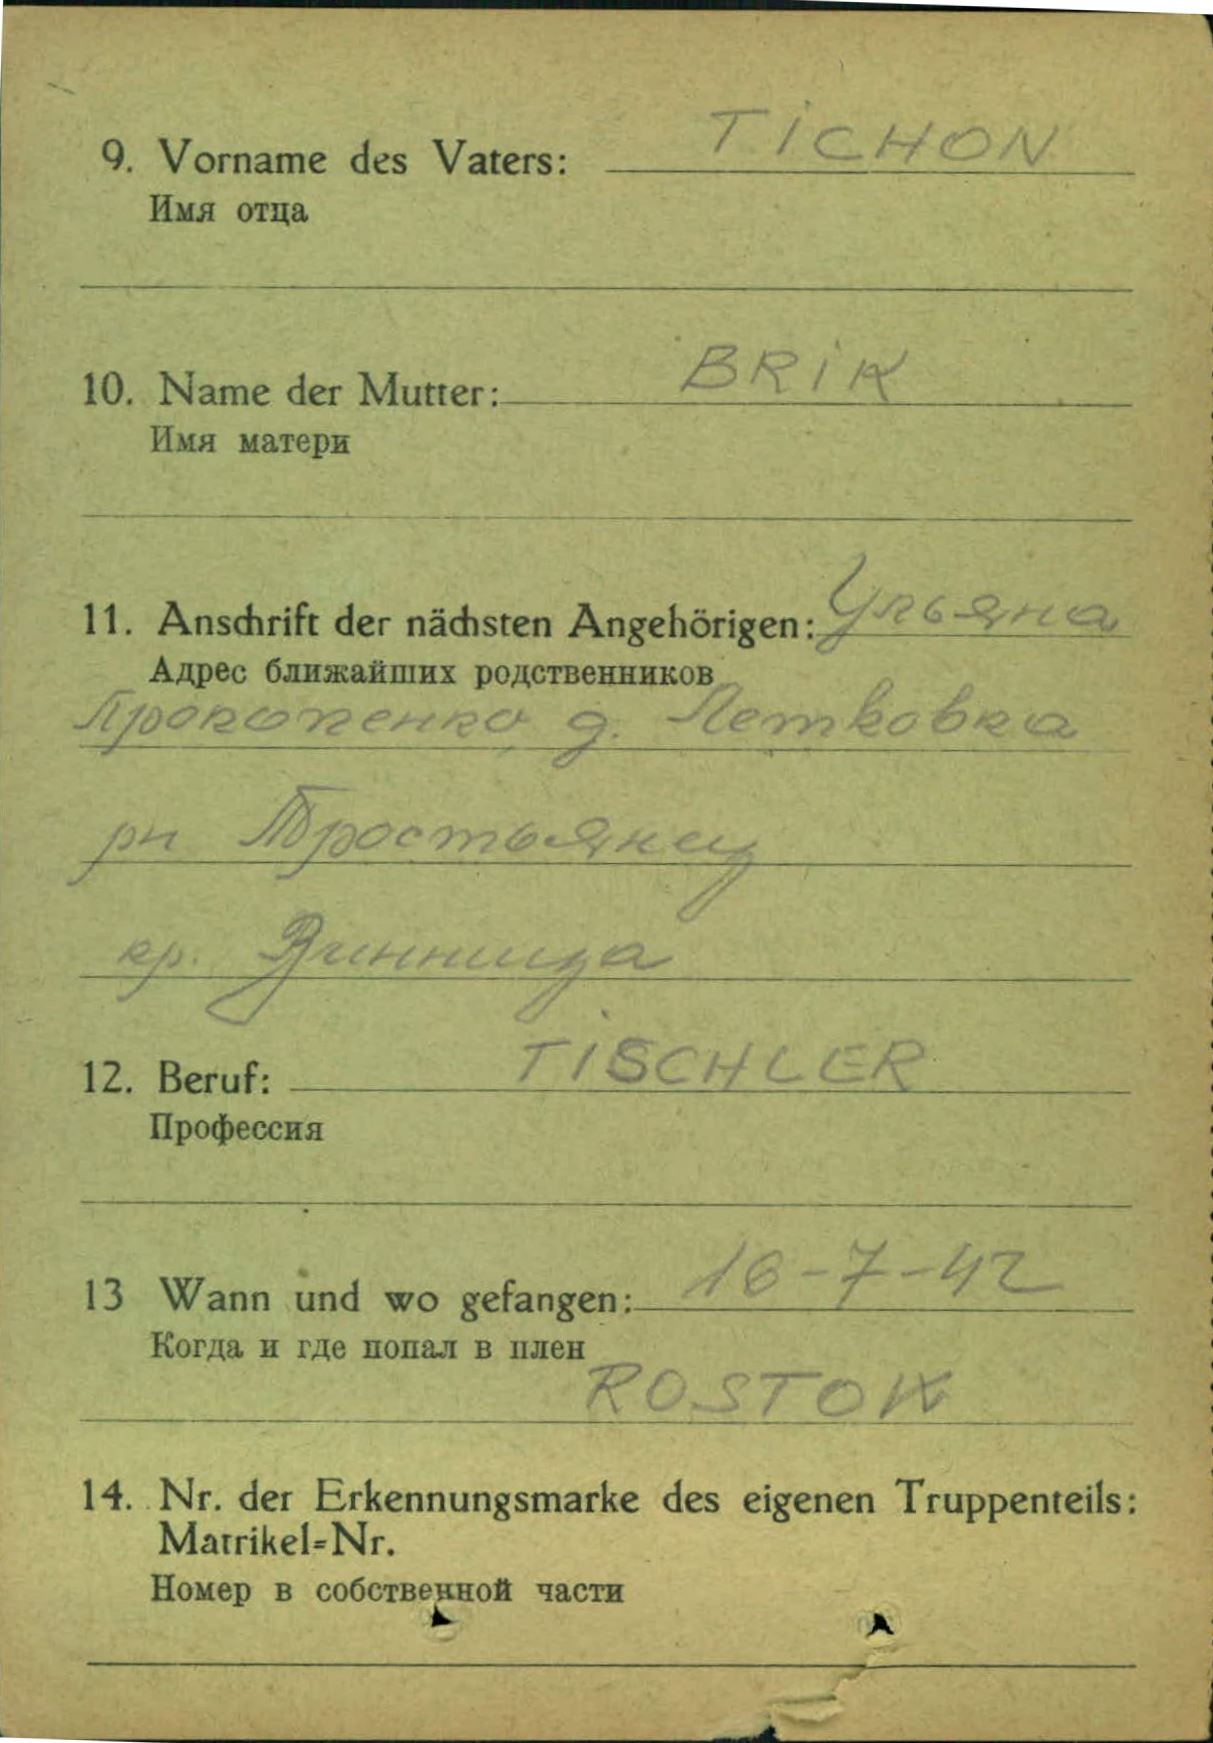 9. Vorname des Vaters: TICHON
Имя отца
10. Name der Mutter: BRIK
Имя матери
11. Anschrift der nächsten Angehörigen: Ульяна
Адрес ближайших родственников
Прокопенко д. Летковка
рн Тростьянец
кр. Винница
12. Beruf: TISCHLER
Профессия
13 Wann und wo gefangen: 16-7-42
Когда и где попал в плен
ROSTOW
14. Nr. der Erkennungsmarke des eigenen Truppenteils:
Matrikel=Nr.
Номер в собственной части